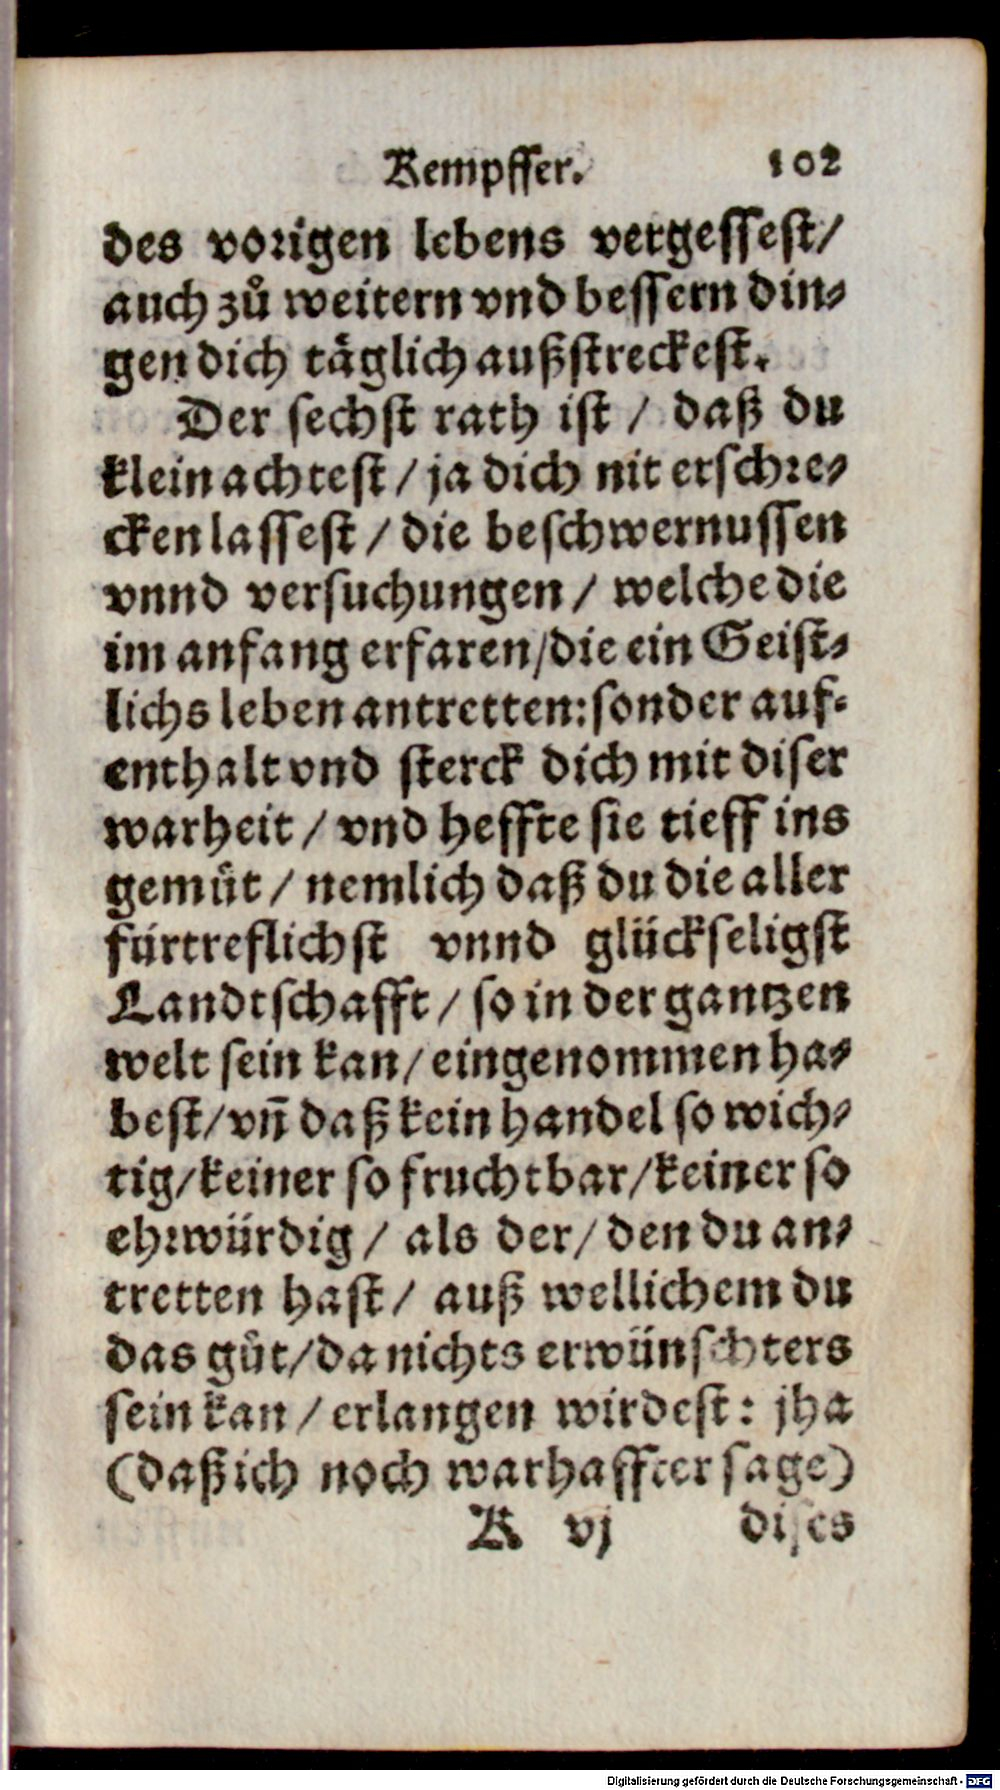 Kempffer. 102
des vorigen lebens vergessest/
auch zů weitern vnd bessern din-
gen dich täglich außstreckest.
Der sechst rath ist / daß du
klein achtest / ja dich nit erschre-
cken lassest / die beschwernussen
vnnd versuchungen / welche die
im anfang erfaren/die ein Geist-
lichs leben antretten: sonder auf-
enthalt vnd sterck dich mit diser
warheit / vnd heffte sie tieff ins
gemüt / nemlich daß du die aller
fürtreflichst vnnd glückseligst
Landtschafft / so in der gantzen
welt sein kan / eingenommen ha-
best/vñ daß kein handel so wich-
tig/keiner so fruchtbar/keiner so
ehrwürdig / als der/ den du an-
tretten hast / auß wellichem du
das gůt/da nichts erwünschters
sein kan / erlangen wirdest: jha
(daß ich noch warhaffter sage)
K vj dises
Digitalisierung gefördert durch die Deutsche Forschungsgemeinschaft - DFG